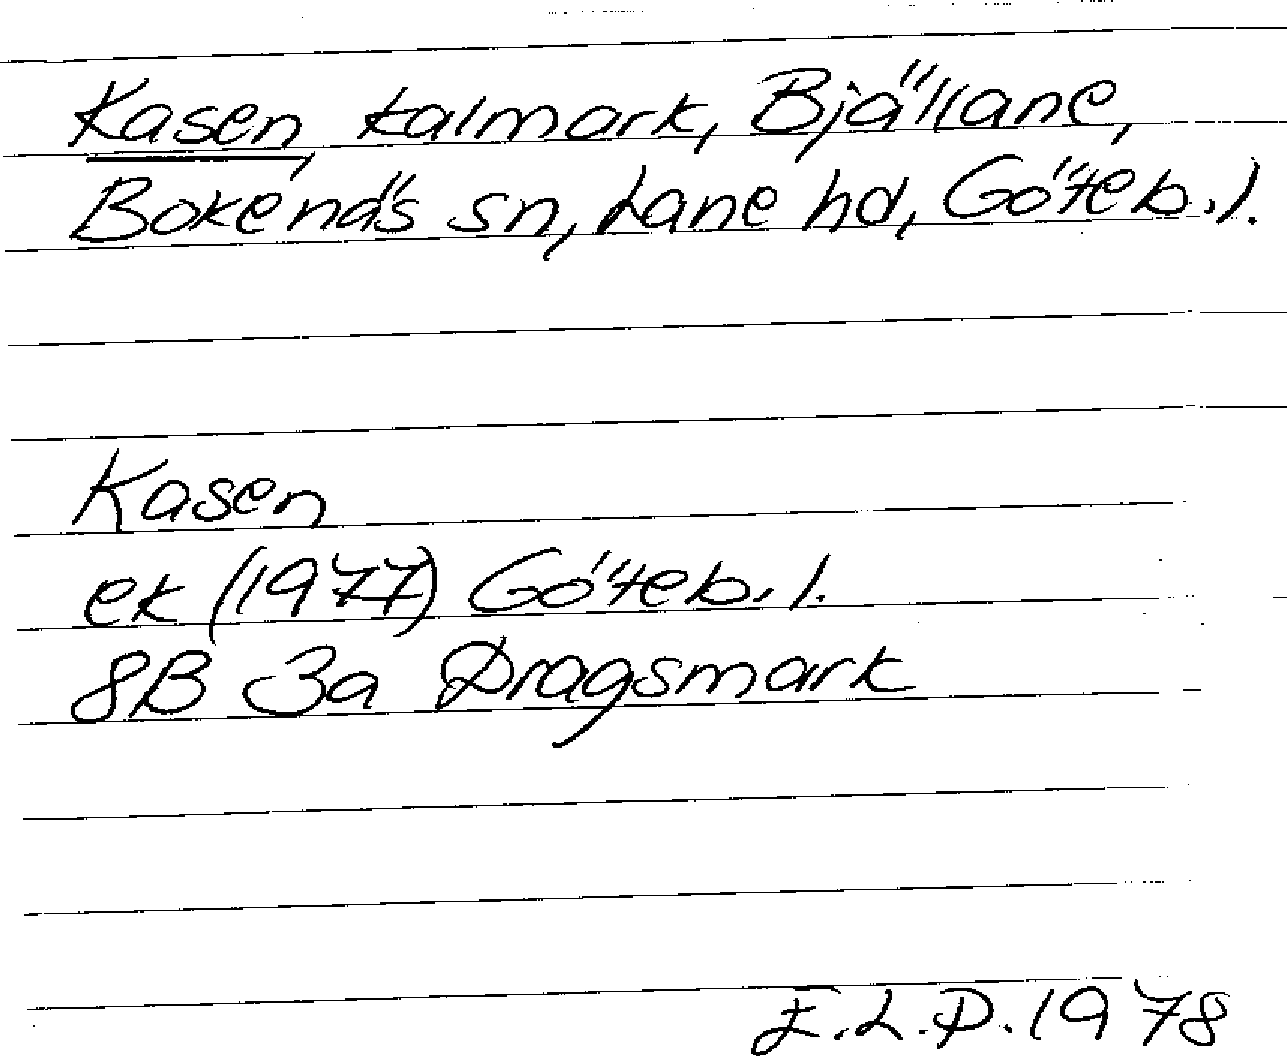 Kasen, kalmark, Bjällane,
Bokenäs sn, Lane hd, Göteb. l.
Kasen
ek (1977) Göteb. l.
8B 3a Dragsmark
E.L.P. 1978